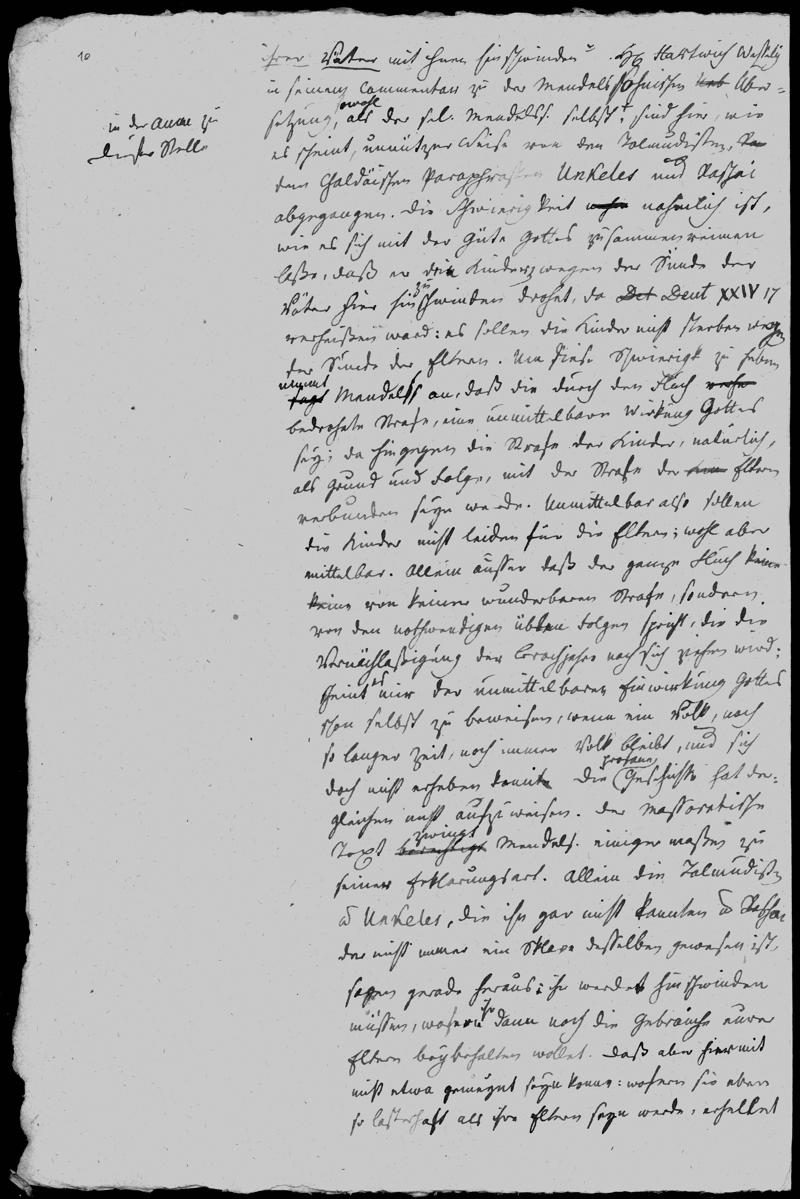 10
in der Anm zu
dieser Stelle
ihrer Väter mit ihnen hinschwinden". HE Hartwich Wessely
in seinem Commentar zu der Mendelssohnschen Ueb Über-
setzung, sowohl als der sel. Mendelss. selbst, sind hier, wie
es scheint, unnützer Weise von den Talmudisten,
dem Chaldäischen Paraphrasten Unkeles und Raschi
abgegangen. Die Schwierigkeit nahmlich ist,
wie es sich mit der Güte Gottes zusammenreimen
laße, daß er den Kindern, wegen der Sünde der
Väter hier hinzuschwinden drohet, da Det Deut XXIV 17
verheißen ward: es sollen die Kinder nicht sterben wegen
der Sünde der Eltern. Um diese Schwierigk zu heben
nimmt sagt Mendelss an, daß die durch den Fluch
bedrohete Strafe, eine unmittelbare Wirkung Gottes
sey; da hingegen die Strafe der Kinder, natürlich,
als Grund und Folge, mit der Strafe der Eltern
verbunden seyn werde. Unmittelbar also sollen
die Kinder nicht leiden für die Eltern; wohl aber
mittelbar. Allein ausser daß der ganze Fluch keine
keine von keiner wunderbaren Strafe, sondern
von den nothwendigen üblen Folgen spricht, die die
Vernachlaßigung der Brachjahre nach sich ziehen wird;
scheint es mir der unmittelbaren Einwirkung Gottes
schon selbst zu beweisen, wenn ein Volk, nach
so langer Zeit, noch immer Volk bleibt, und sich
doch nicht erheben kann. Die profane Geschichte hat der-
gleichen nicht aufzuweisen. Der Massoretische
Text berechtigt zwingt Mendels. einiger maßen zu
seiner Erklärungsart. Allein die Talmudisten
u Unkeles, die ihn gar nicht kannten u Raschi
der nicht immer ein Sklave desselben gewesen ist,
sagen gerade heraus: ihr werdet hinschwinden
müssen, wofern ihr dann noch die Gebräuche eurer
Eltern beybehalten wollet. Daß aber hiermit
nicht etwa gemeynt seyn könne: wofern sie eben
so lasterhaft als ihre Eltern seyn werde, erhellet